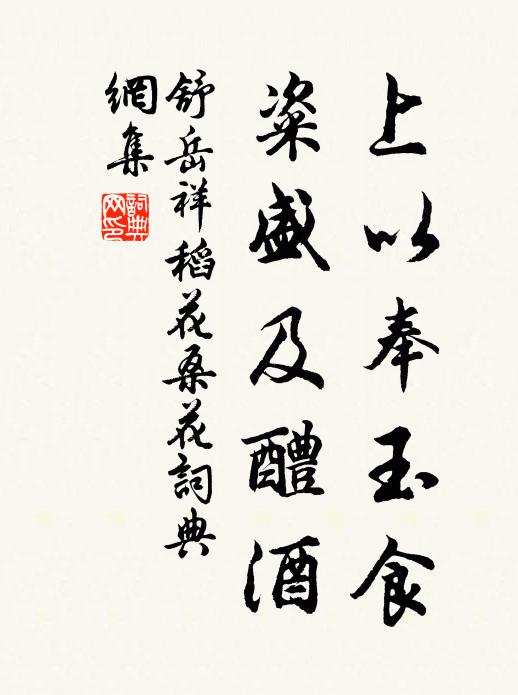 上以奉玉食
粢盛及醴酒
舒岳祥稻花桑花詞典
網集
詞典
网印